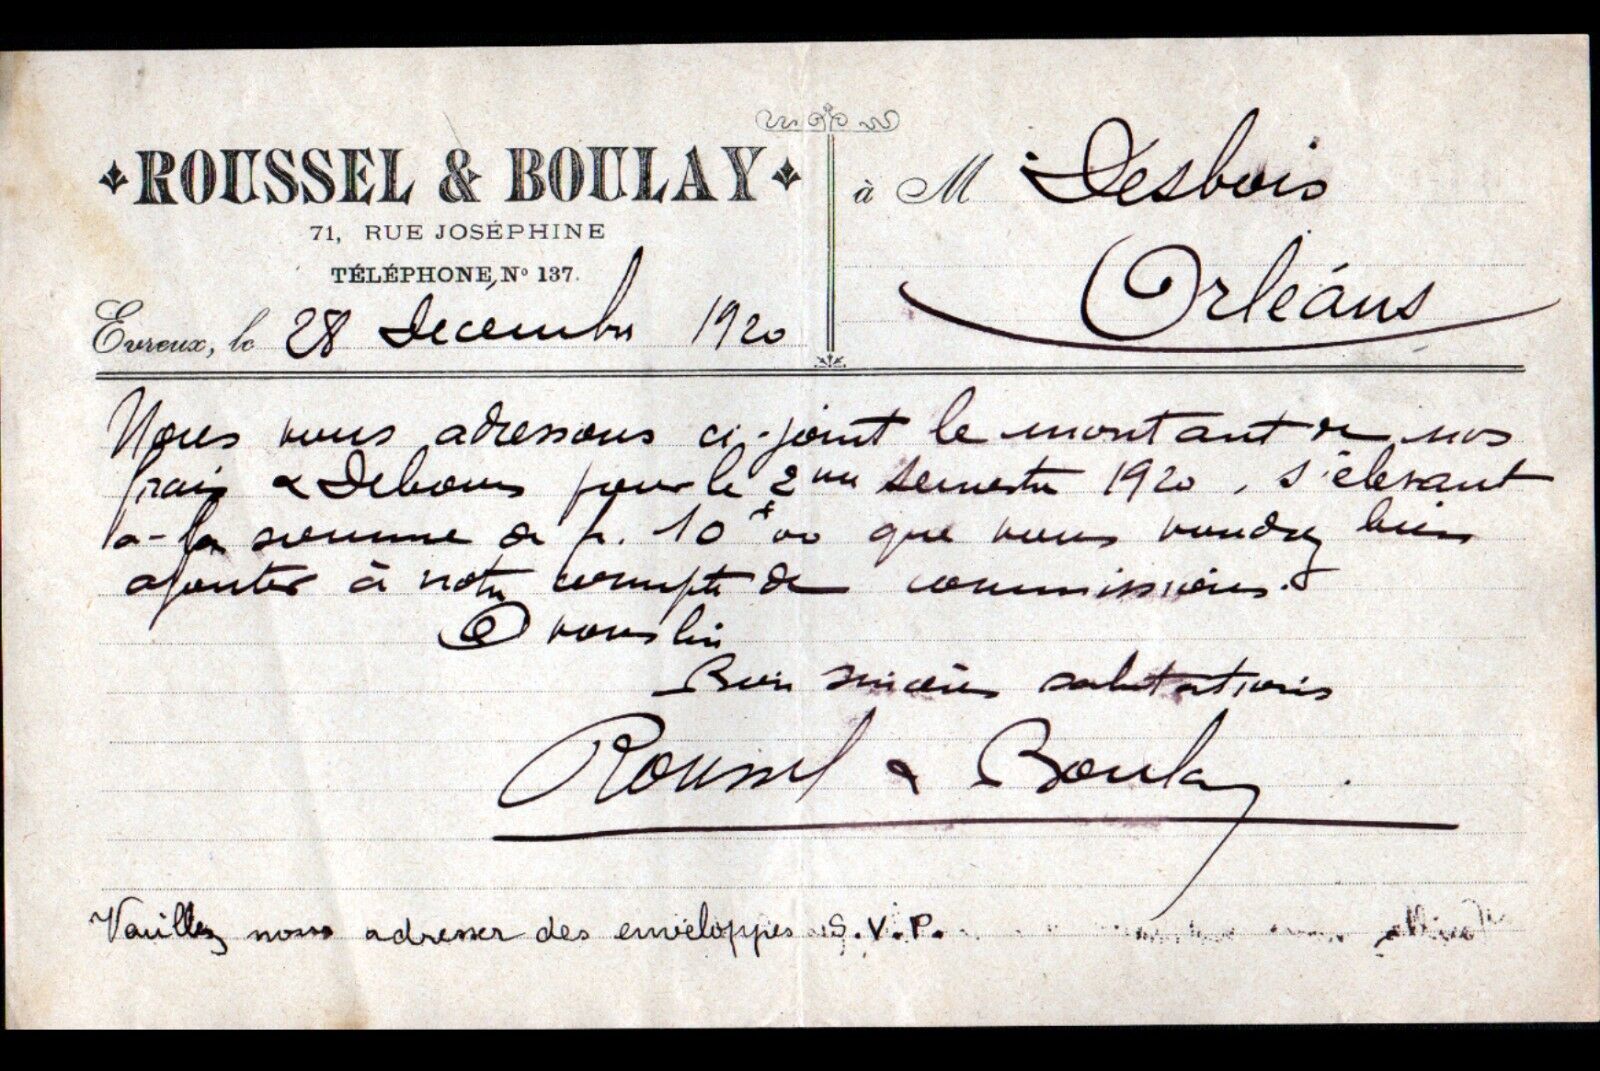 ROUSSEL & BOULAY
71, RUE JOSÉPHINE
TÉLÉPHONE, No 137.
Evreux, le 28 Decembre 1920
à M Desbois
Orléans
Nous vous adressons ci-joint le montant de nos
frais & Debours pour le 2me semestre 1920, s'élevant
a la somme de fr. 10f00 que vous voudrez bien
ajouter à notre compte de commissions.
vous lire
Bien sincères salutations
Roussel & Boulay
Veuillez nous adresser des enveloppes S.V.P.